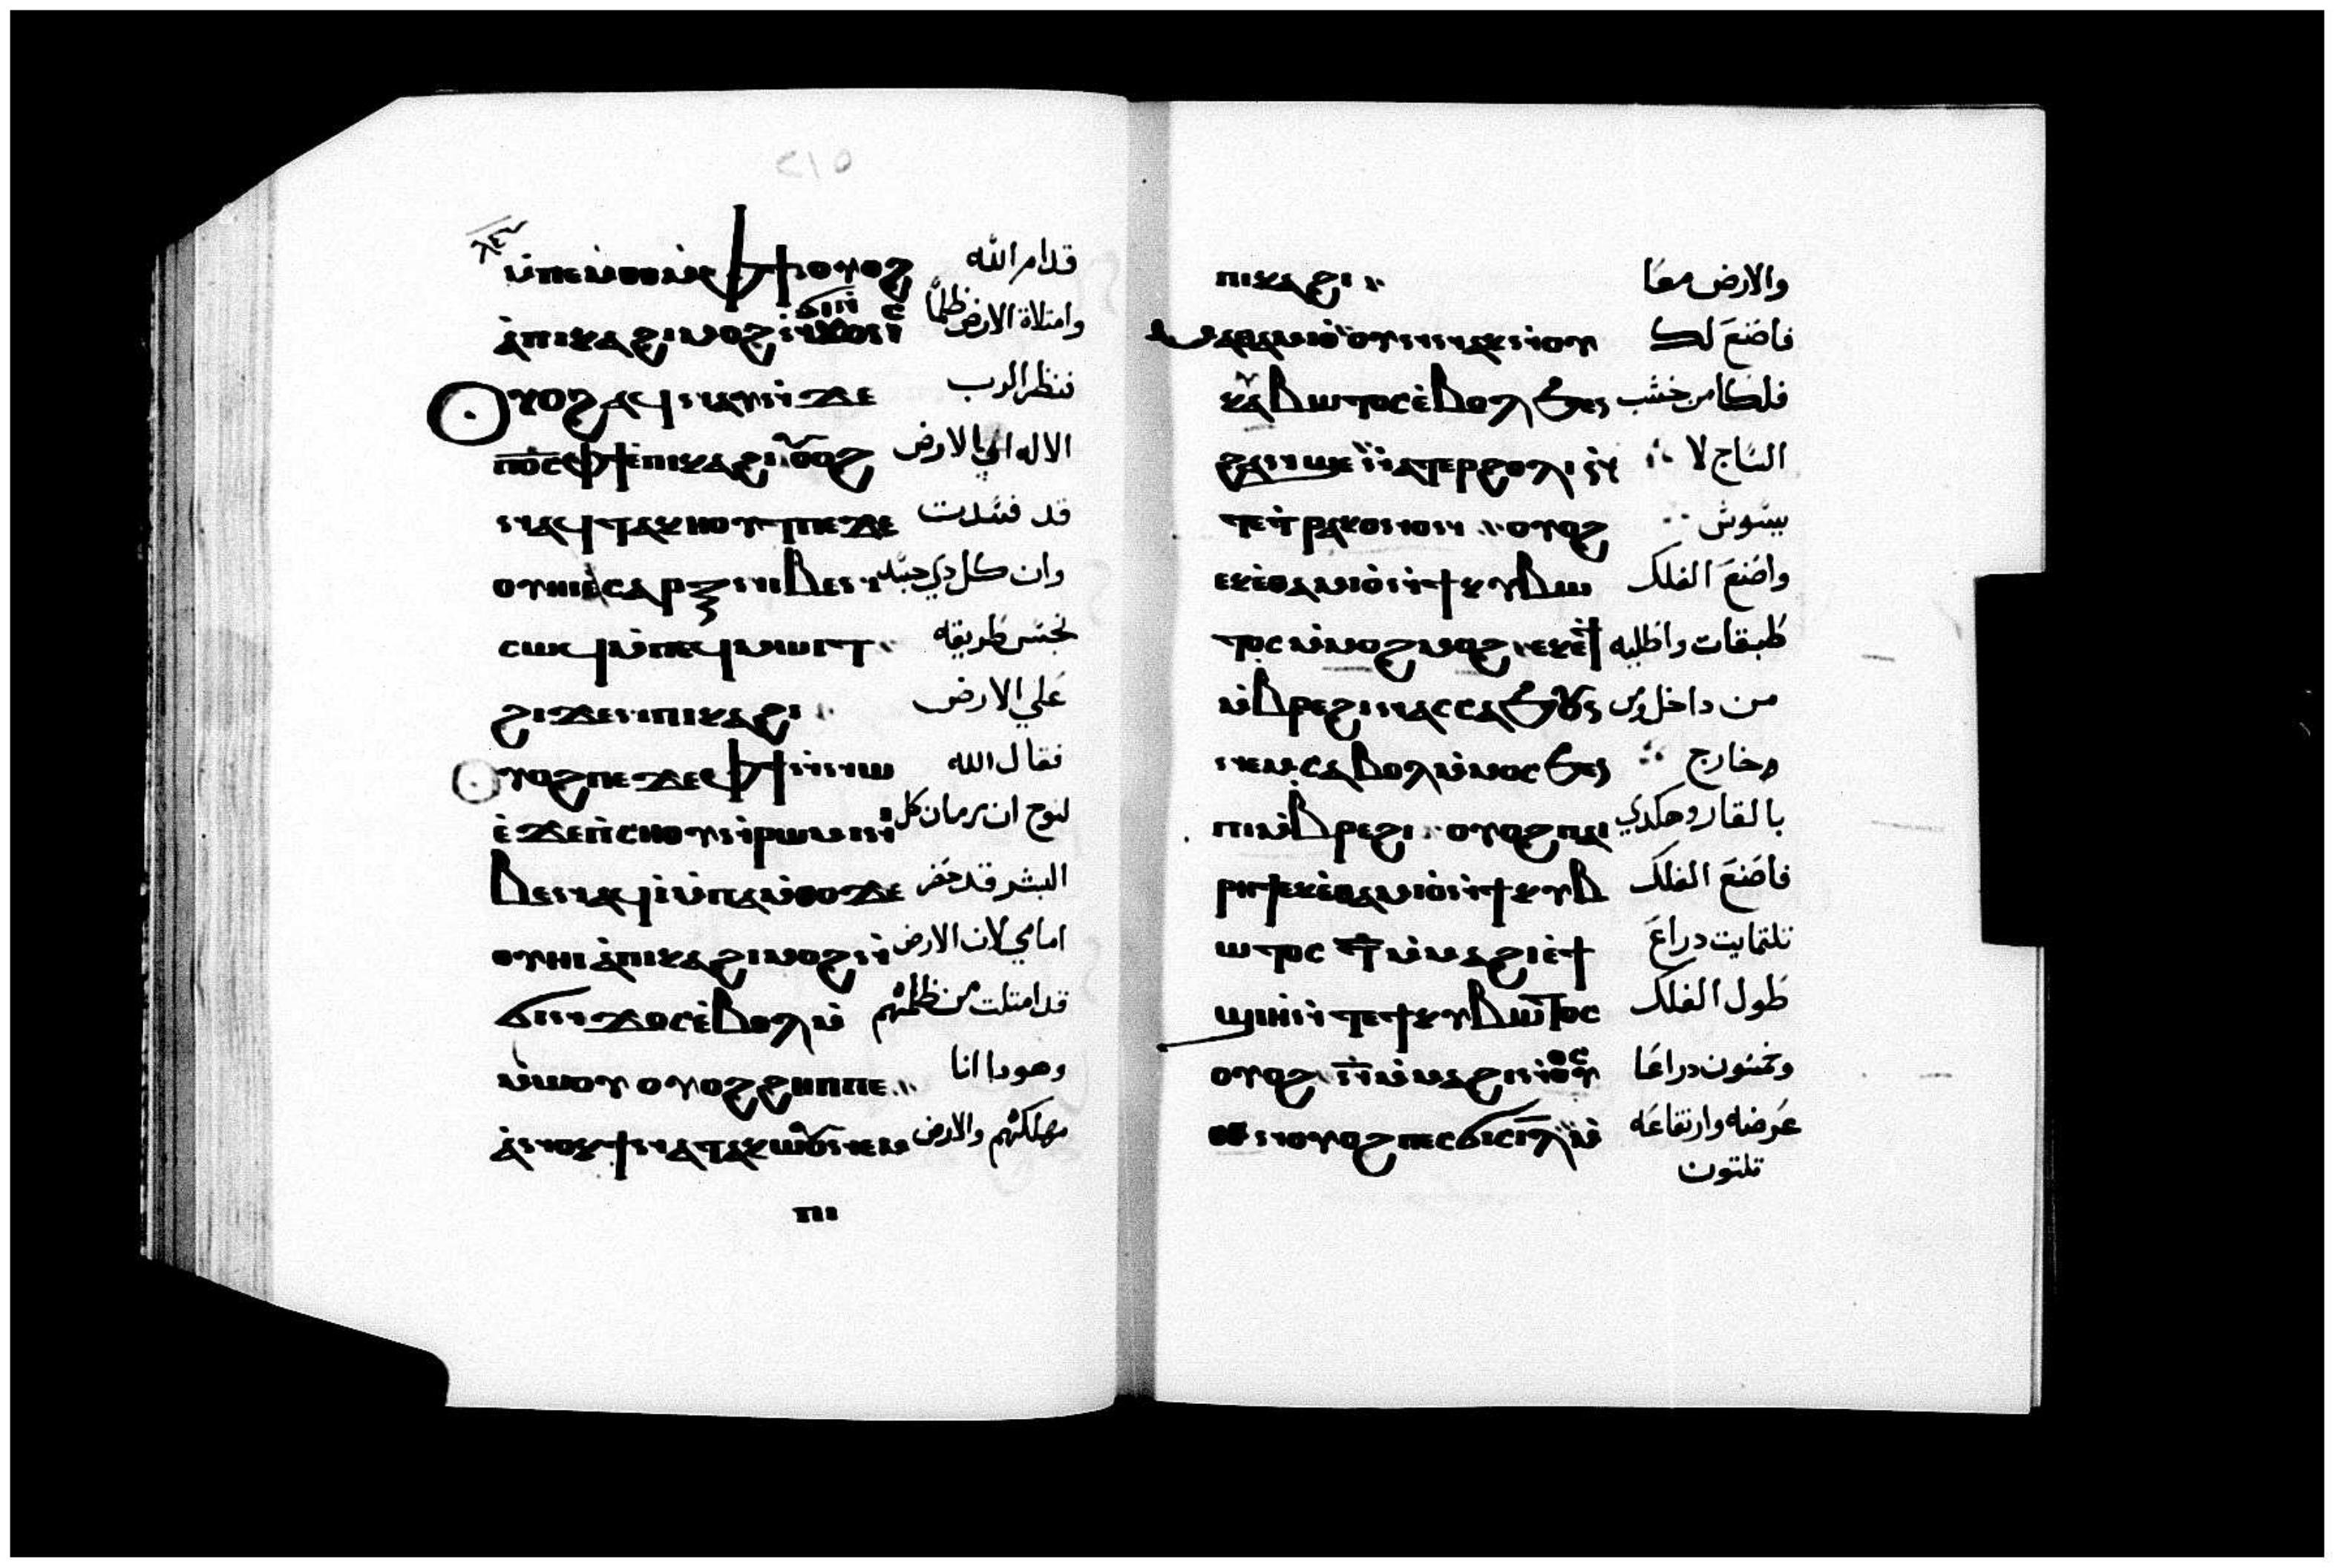 ⲙ̀ⲡⲉⲙⲑⲟ ⲙ̀ⲫϯ ⲟⲩⲟϩ قدام الله
ⲁ̀ⲡⲓⲕⲁϩⲓ ⲙⲟϩ ⲛ̀ϭⲓⲛϫⲟⲛⲥ وامتلاة الارض ظلماً
ⲟⲩⲟϩ ⲁϥⲛⲁⲩ ⲛ̀ϫⲉ فنظر الرب
ⲡⲟ̅ⲥ̅ ⲫϯ ⲉ̀ⲡⲓⲕⲁϩⲓ ⲟⲩⲟϩ الاله الي الارض
ⲛⲁϥⲧⲁⲕⲏⲟⲩⲧ ⲡⲉ ϫⲉ قد فسدت
ⲟⲩⲏⲓ ⲁ̀ⲥⲁⲣⲝ ⲛⲓⲃⲉⲛ وان كل دي جسد
ⲥⲱϥ ⲙ̀ⲡⲉϥⲙⲱⲓⲧ نجس طريقه
ϩⲓϫⲉⲛ ⲡⲓⲕⲁϩⲓ علي الارض
ⲟⲩⲟϩ ⲡⲉϫⲉ ⲫϯ ⲛ̀ⲛⲱⲉ̀ فقال الله
ϫⲉ ⲡ̀ⲥⲏⲟⲩ ⲛ̀ⲣⲱⲙⲓ ⲛⲓ لنوح ان زمان كل
ⲃⲉⲛ ⲁϥⲓ̀ ⲙ̀ⲡⲁⲙ̀ⲑⲟ ϫⲉ البشر قد حضر
ⲟⲩⲏⲓ ⲁ̀ⲡⲓⲕⲁϩⲓ ⲙⲟϩ ⲛ̀ امامي لان الارض
ϭⲓⲛϫⲟⲥ ⲉ̀ⲃⲟⲗ ⲙ̀ قد امتلت من ظلمهم
ⲙⲱⲟⲩ ⲟⲩⲟϩ ϩⲏⲡⲡⲉ وهودا انا
ⲁ̀ⲛⲟⲕ ϯⲛⲁⲧⲁⲕⲱⲟⲩ ⲛⲉⲙ مهلكهم والارض
ⲡⲓ
ⲡⲓⲕⲁϩⲓ والارض معا
ⲙⲁⲑⲁⲙⲓⲟ̀ ⲟⲩⲛ ⲛⲁⲕ ⲛ̀ⲟⲩ فاصنع لك
ⲕⲩⲃⲱⲧⲟⲥ ⲉ̀ⲃⲟⲗ ϧⲉⲛ فلكا من خشب
ϩⲁⲛϣⲉ ⲛ̀ⲁⲧⲉⲣϩⲟⲗⲓ ⲛ̀ الساج لا
ⲧⲉⲧⲣⲁⲕⲟⲛⲟⲛ ⲟⲩⲟϩ يسوش
ⲉⲕⲉ̀ⲑⲁⲙⲓⲟ̀ ⲛ̀ϯⲕⲩⲃⲱ واصنع الفلك
ⲧⲟⲥ ⲙ̀ⲙⲟϩ ⲙⲟϩ ⲉⲕⲉ̀ϯ طبقات واطليه
ⲙ̀ⲃⲣⲉϩⲓ ⲛⲁⲥ ⲥⲁϧⲟⲩⲛ من داخل
ⲛⲉⲙ ⲥⲁⲃⲟⲗ ⲙ̀ⲙⲟⲥ ϧⲉⲛ وخارج
ⲡⲓⲙ̀ⲃⲣⲉϩⲓ ⲟⲩⲟϩ ⲡⲁⲓ بالقار وهكدي
ⲣⲏϯ ⲉⲕⲉ̀ⲑⲁⲙⲓⲟ̀ ⲛ̀ϯⲕⲩⲃ فاصنع الفلك
ⲱⲧⲟⲥ ⲧ̅ ⲙ̀ⲙⲁϩⲓ ⲉ̀ϯ تلتمايت دراع
ϣⲓⲏ ⲛ̀ⲧⲉ ϯⲕⲩⲃⲱⲧⲟⲥ طول الفلك
ⲟⲩⲟϩ ⲛ̅ ⲙ̀ⲙⲁϩⲓ ⲛ̀ⲟⲩⲟⲥ وخمسون دراعا
ⲑⲉⲛ ⲟⲩⲟϩ ⲡⲉⲥϭⲓⲥⲓ ⲗ̅ ⲙ̀ عرضه وارتفاعه
تلتون